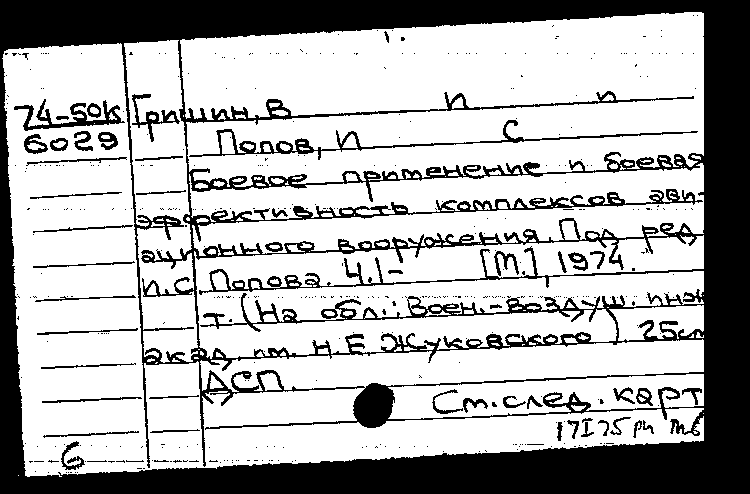 74-50к Гришин, В п п
6029 Попов, И С
Боевое применение и боевая
эффективность комплексов ави-
ационного вооружения. Под ред
И.С. Попова. Ч.1- [М.], 1974.
т. (На обл.: Воен.-воздуш. инж
акад. им. Н.Е. Жуковского). 25см
ДСП.
См. след. карт
17I75
6